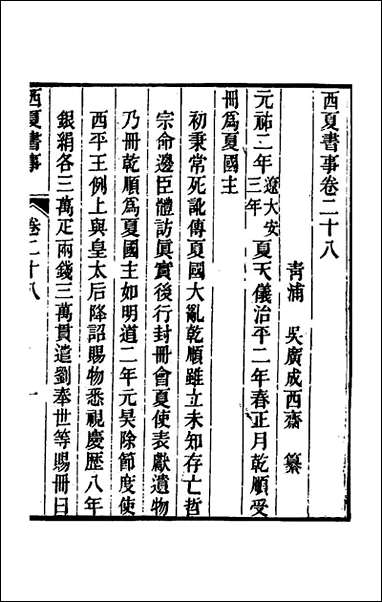 西夏書事卷二十八
青浦 吳廣成西齋 纂
元祐二年遼大安三年夏天儀治平二年春正月乾順受
冊爲夏國主
初秉常死訛傳夏國大亂乾順雖立未知存亡哲
宗命邊臣體訪眞實後行封冊會夏使表獻遺物
乃冊乾順爲夏國主如明道二年元昊除節度使
西平王例上與皇太后降詔賜物悉視慶歷八年
銀絹各三萬疋兩錢三萬貫遣劉奉世等賜冊曰
西夏書事 卷二十八 一